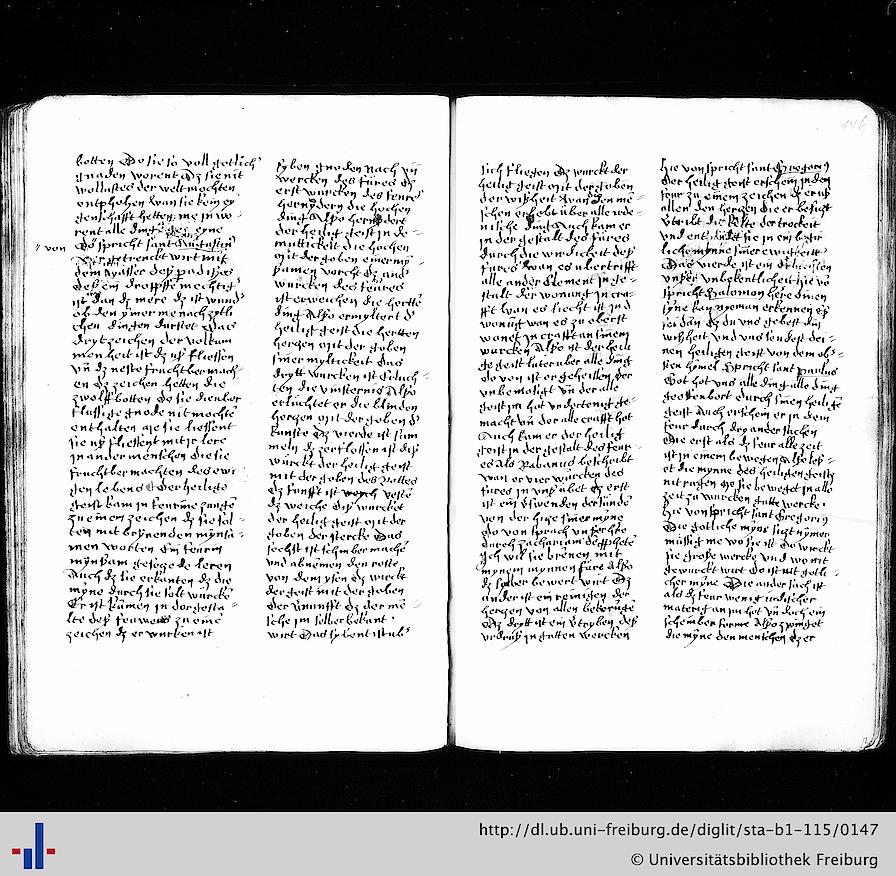 botten Do sie so voll götlich
gnaden worent dz sie nit
wollustes der welt mochten
enpfohen wan sie kein ey
genschafft hetten
rent alle ding gegeyne
von
Do spricht sant Augustin
getrenckt wirt mit
dem wasser deß padißes
deß ein tropffe mechtig
ist dan dz mere dz ist wand
ob den ymer me nach zytli
chen dingen durstet Das
drytzeichen der volkum
menheit ist dz uß fliessen
vn dz neste fruchtber mach
en dz zeichen hetten die
zwolffbotten do sie die uber
flussige gnode nit mochte
enthalten sie liessent
sie uß fliessent mit ir lere
in ander menschen die sie
fruchtber machten des ewi
gen lebens Der heilige
geist kam in feurine zungē
zu einem zeichen dz sie sol
ten mit brynenden mynsa
men worten
mynsam
Auch dz sie erkanten dz die
myne durch sie solt wurckē
Er ist kumen in der gesta
lte deß feuwers zu eine
zeichen dz er wurcken ist
syben gnoden nach
wercken des füres dz
erst wurcken des feures
hernydern die hochen
ding Also hernydert
der heilig geist in de
muttikeit die hochen
mit der goben
samen vorcht dz ander
wurcken des feures
ist erweichen die herttē
ding Also ermyltert d
heilig geist die hertten
herczen mit der goben
siner myltickeit Das
drytt wurcken ist erluch
ten die vinsternis Also
erluchtet er die blinden
herczen mit der goben d
kunste dz vierde ist sam
meln dz zerflossen ist diß
würckt der heilig geist
mit der goben des Rottes
dz funfft ist veste
dz weiche diß wurcket
der heilig geist mit der
goben der stercke Das
sechst ist schinber mache
und abnemen den roste
von dem ysen dz wirckt
der geist mit der goben
der vnunfft dz der me
sche im selber bekant
wirt Das sybent ist ub
sich fliegen dz wurckt der
heilig geist mit der goben
der wißheit wan den me
schen erhebt über alle irde
nische ding Auch kam er
in der gestalt des füres
durch die wirdickeit deß
füres wan es ubertrifft
alle ander Element in ge
stalt der wonung in cra
fft wan es liecht ist in d
wonūg wan es zu oberst
wonet in crafft an sinem
wurcken Also ist der heili
ge geist luter uber alle ding
do von ist er geheissen der
unbemoligt vn der alle
geist in hat
macht vn der alle crafft hat
Auch kam er der heilig
geist in der gestalt des feur
es als Rabanus beschribt
wan er vier würcken des
füres in uns übet dz erst
ist ein
von der hicze siner myne
do von sprach unser herre
durch zachariam
Ich wil sie brenen mit
mynem mynnen füre Also
dz sylber bewert wirt Dz
ander ist ein reinigen der
herczen von allen bekorūgē
Dz drytt ist ein vtryben deß
urdrucz in gutten wercken
Hie von spricht sant Gregoriꝰ
der heilig geist erschein in dem
four zu einem zeichen dz er uß
allen den herczen die er besiczt
vtribt die kelte der trockeit
und sie in ein begir
liche mynne siner ewigkeit
Das vierde ist ein erluchten
unser unbekentlicheit hie vo
spricht Salomon here dinen
syne kan nyeman erkennen es
sei dan dz du uns gebest din
wißheit und uns sendest dei
nen heiligen geist von dem ob
sten hymel spricht sant paulus
Got hot uns alle ding alle ding
geoffenbort durch sinen heiligē
geist Auch erschein er in dem
feur durch dry ander sachen
Die erst als dz feur alle zeit
ist in einem bewegen Also
et die mynne des heiligen geists
nit rugen
zeit zu wurcken gutte wercke
Hie von spricht sant Gregoriꝰ
Die gotliche myne sicht nymer
mussig me wo sie ist do wirckt
sie grosse wercke und wo nit
gewurckt wirt do ist nit gotli
cher myne Die ander sach ist
als dz feur wenig irdischer
materig an im hot vn doch ein
schinber forme Also zwinget
die myne den menschen dz er
146
http://dl.ub.uni-freiburg.de/diglit/sta-b1-115/0147
© Universitätsbibliothek Freiburg